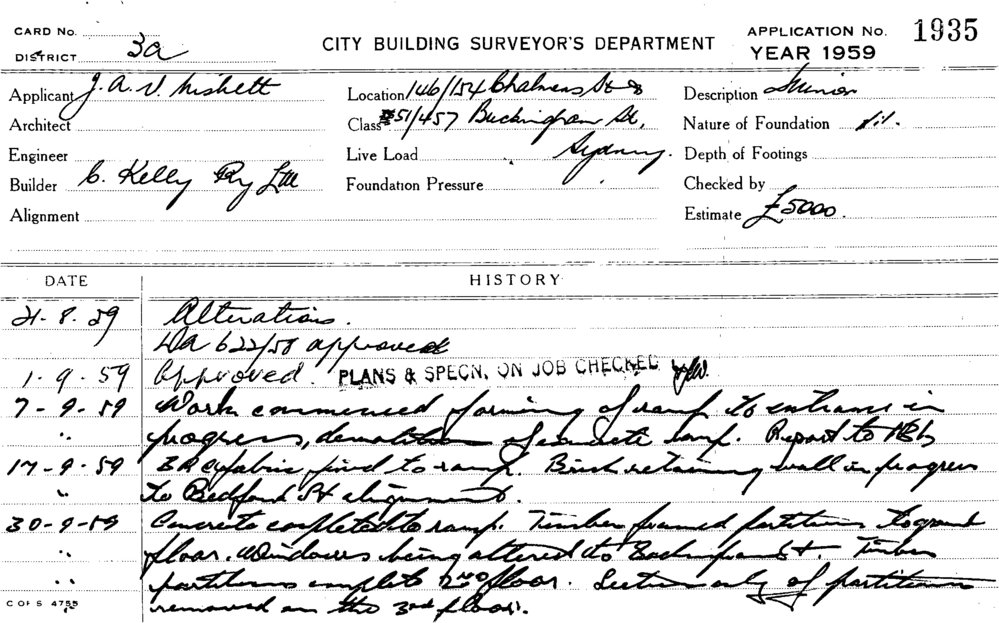 CARD No.
DISTRICT 3a
CITY BUILDING SURVEYOR'S DEPARTMENT
APPLICATION No. 1935
YEAR 1959
Applicant J. A. V. Nisbett
Location 146/154 Chalmers St &
Description Minor
Architect
Class 451/457 Buckingham St,
Nature of Foundation
Engineer
Live Load Sydney.
Depth of Footings
Builder C. Kelly Pty Ltd
Foundation Pressure
Checked by
Alignment
Estimate £5000.
DATE HISTORY
21-8-59 Alterations.
DA 622/58 approved
1-9-59 Approved. PLANS & SPECN. ON JOB CHECKED
7-9-59 Work commenced forming of ramp to entrance in
" progress, demolition of concrete ramp. Report to
17-9-59 B.R.C. fabric fixed to ramp. Brick retaining wall in progress
" to Bedford St alignment.
30-9-59 Concrete completed to ramp. Timber framed partitions to ground
" floor. Windows being altered to Buckingham St. Timber
" partitions complete 2nd floor. Section only of partitions
" removed on the 3rd floor.
C OF S 4755